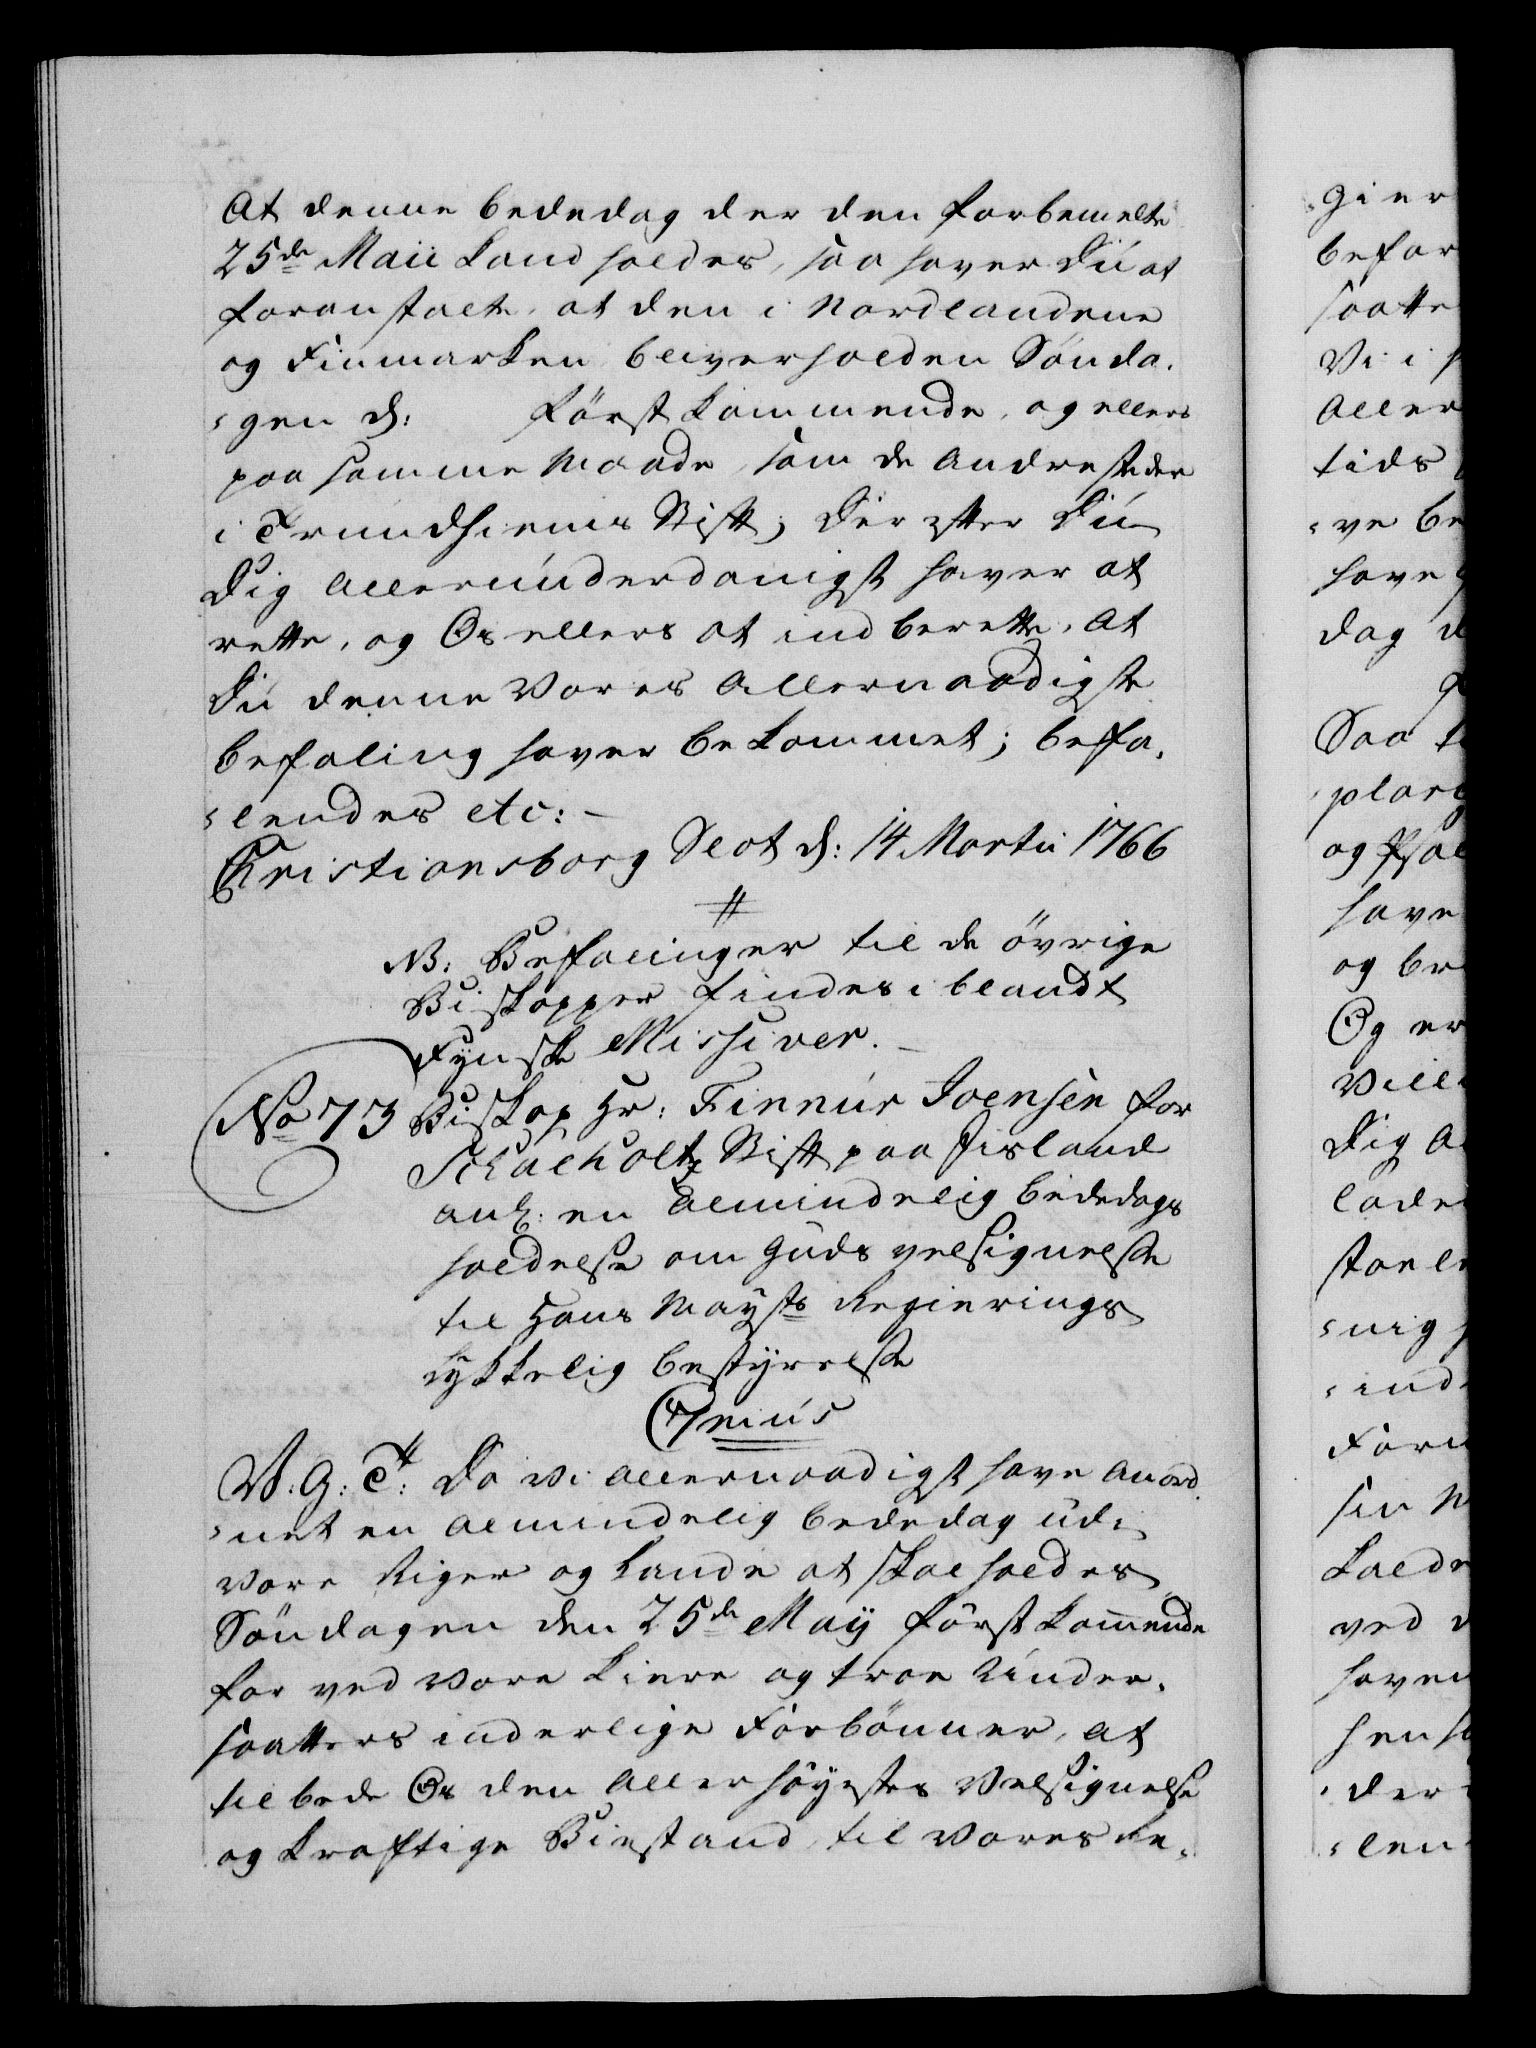 At denne bededag der den forbemelte
25de Maii kand holdes, saa haver Du at
foranstalte, at den i Nordlandene
og Finmarken bliver holden Sönda-
gen d: förstkommende, og ellers
paa samme Maade som de andre stæder
i Trundhiems Stift; Der efter Du
Dig allerunderdanigst haver at
rette, og Os ellers at indberette, at
Du denne Vores allernaadigste
befaling haver bekommet; befa-
lendes etc:
Christiansborg Slot d: 14 Martii 1766
NB: Befalinger til de övrige
Biskopper findes iblandt
Fynske Missiver.
No 73 Biskop Hr: Finnur Joensen for
Schalholtz Stift paa Jisland
anl: en Almindelig bededags
holdelse om Guds velsignelse
til Hans Maysts Regierings
lykkelig bestyrelse
V. G: T: Da vi allernaadigst have anord-
net en almindelig bededag udi
vore Riger og Lande at skal holdes
Söndagen den 25de May förstkommende
for ved vore kiere og troe Under-
saatters inderlige Forbönner, at
tilbede Os den Allerhöyestes Velsignelse
og kraftige Biestand til vores Re-
gier
befor
saatte
Vi i
Aller
tids
ve be
have
dag d
Saa
plare
og Psal
have
og be
Og er
ville
Dig A
lade
nig
ind
ved
haver
der
len